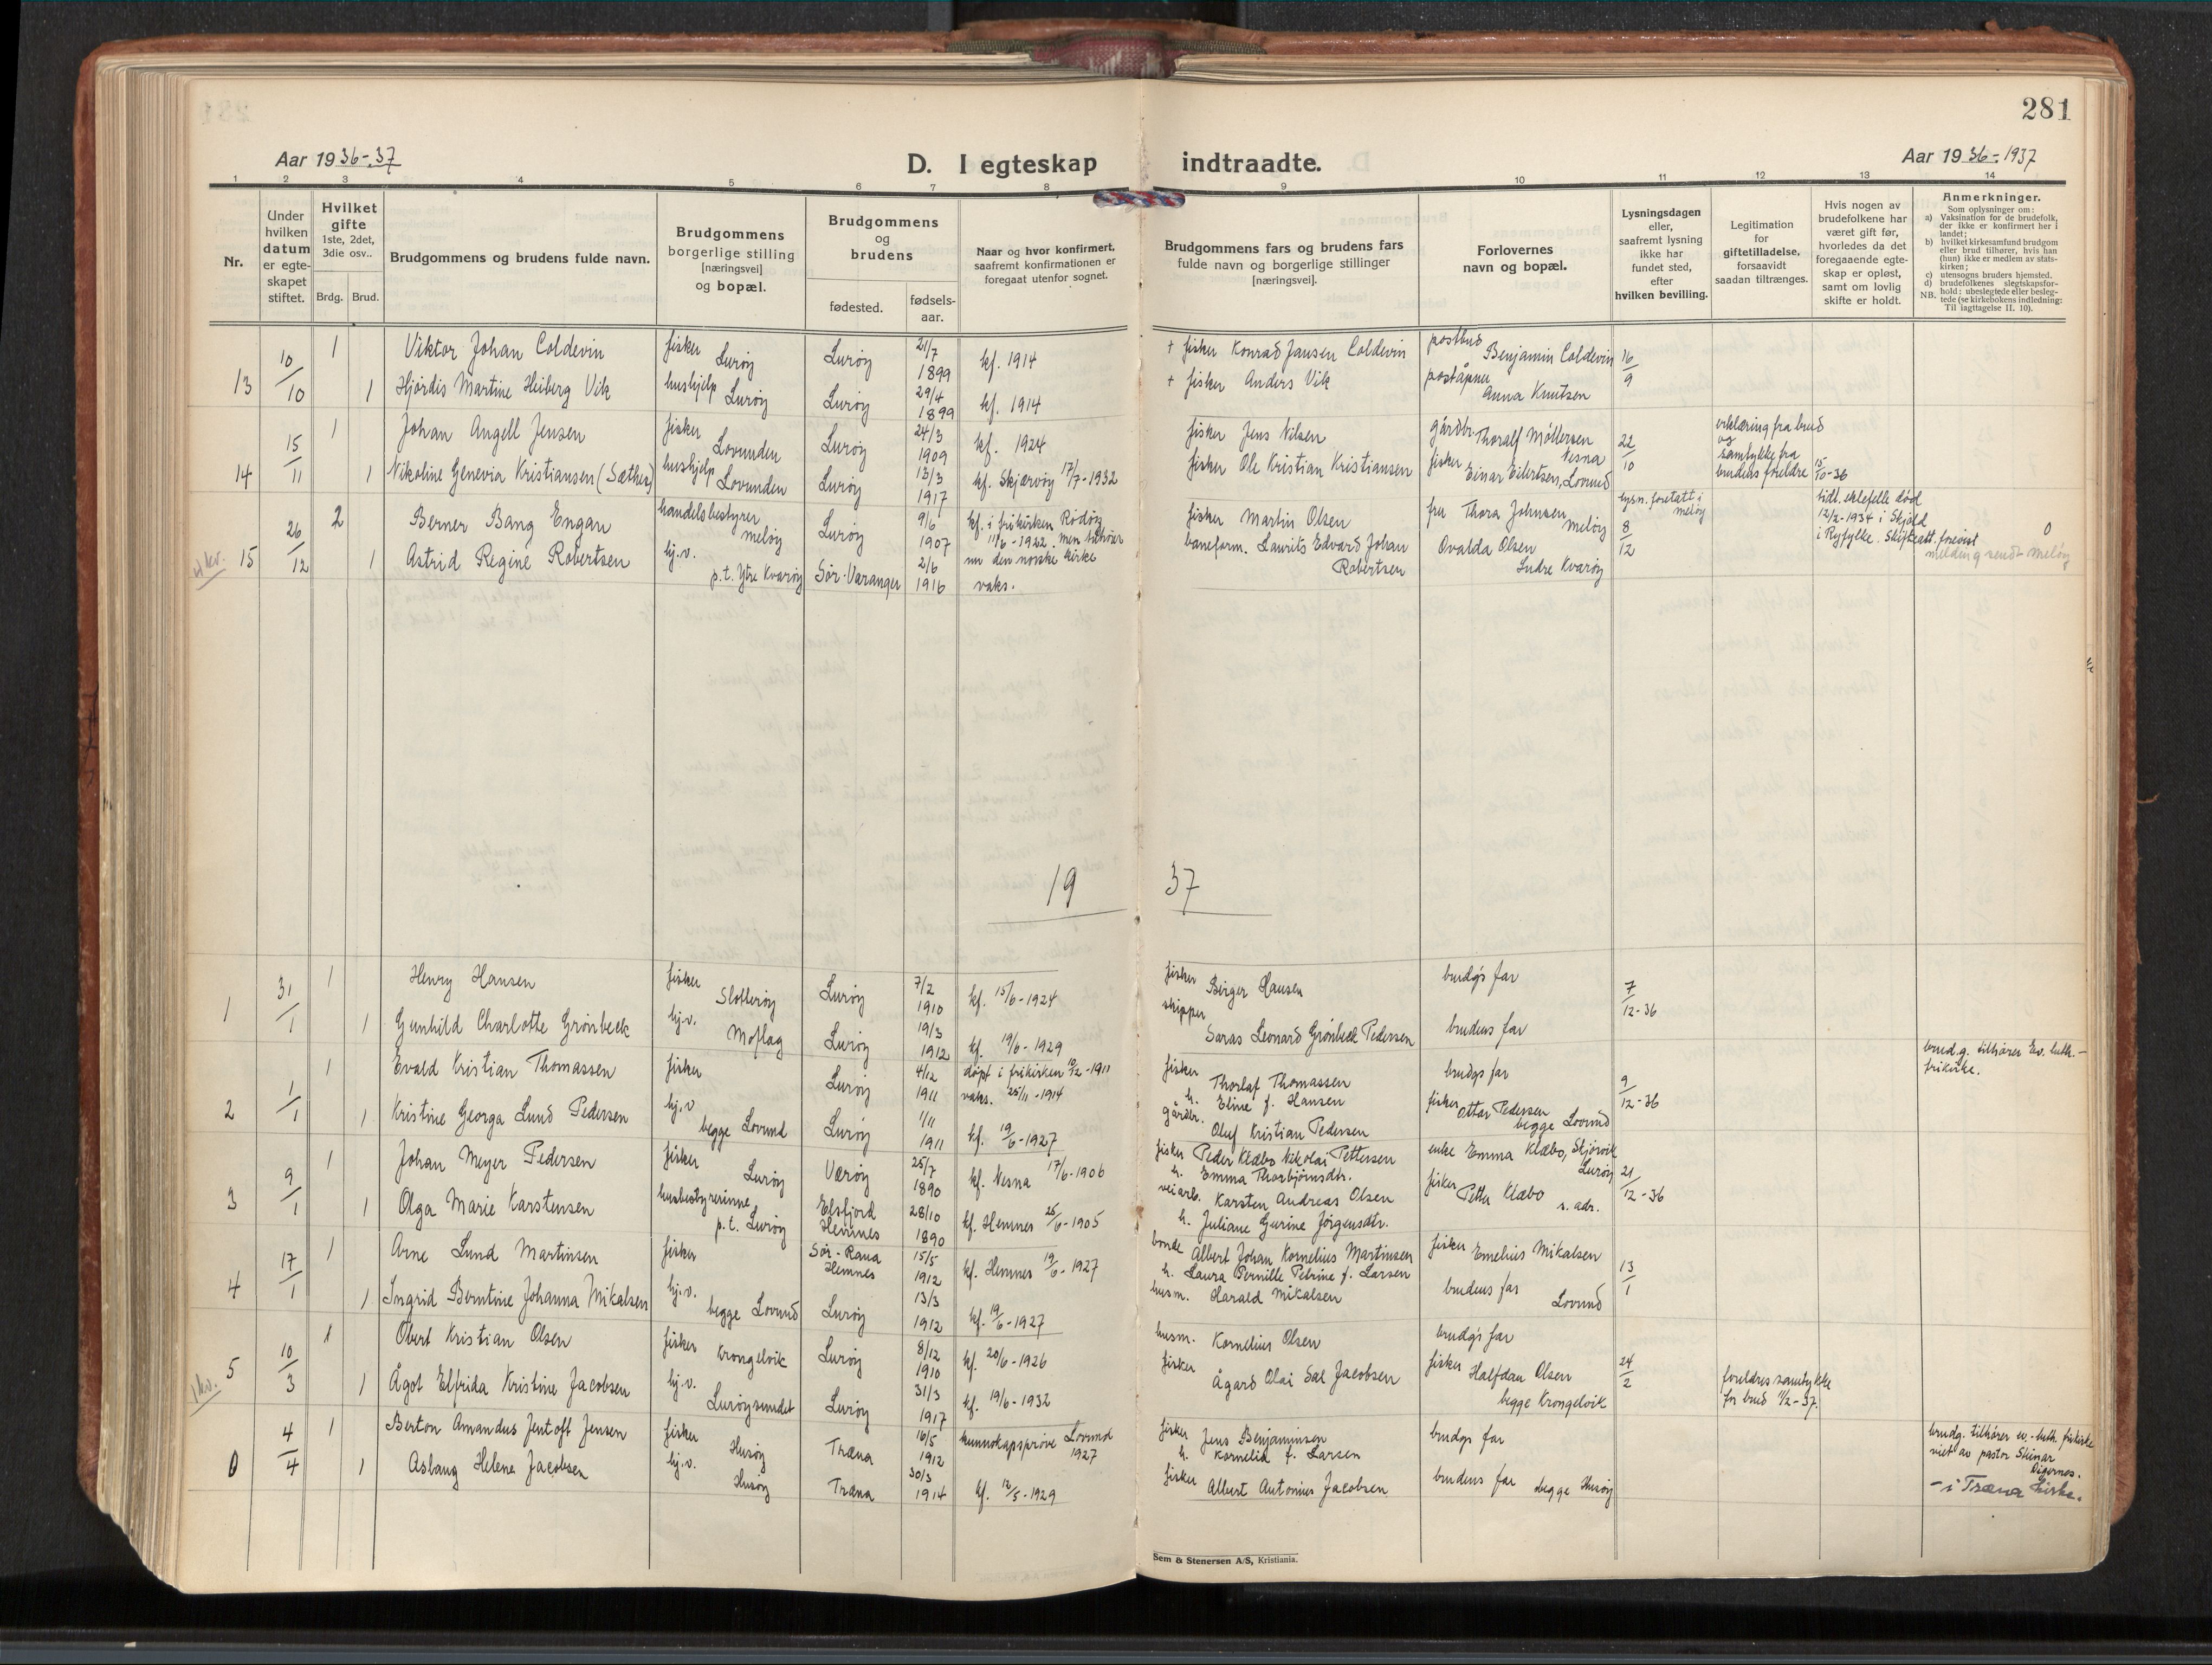 281
Aar 1936-37
D. I egteskap indtraadte.
Aar 1936-1937
1 2 3 4 5 6 7 8 9 10 11 12 13 14
Nr.
Under hvilken datum er egteskapet stiftet.
Hvilket gifte 1ste, 2det, 3die osv..
Brdg. Brud.
Brudgommens og brudens fulde navn.
Brudgommens borgerlige stilling [næringsvei] og bopæl.
Brudgommens og brudens
fødested.
fødselsaar.
Naar og hvor konfirmert, saafremt konfirmationen er foregaat utenfor sognet.
Brudgommens fars og brudens fars fulde navn og borgerlige stillinger [næringsvei].
Forlovernes navn og bopæl.
Lysningsdagen eller, saafremt lysning ikke har fundet sted, efter hvilken bevilling.
Legitimation for giftetilladelse, forsaavidt saadan tiltrænges.
Hvis nogen av brudefolkene har været gift før, hvorledes da det foregaaende egteskap er opløst, samt om lovlig skifte er holdt.
Anmerkninger.
Som oplysninger om:
a) Vaksination for de brudefolk, der ikke er konfirmert her i landet;
b) hvilket kirkesamfund brudgom eller brud tilhører, hvis han (hun) ikke er medlem av statskirken;
c) utensogns bruders hjemsted.
d) brudefolkenes slegtskapsforhold: ubeslegtede eller beslegtede (se kirkebokens indledning: Til iagttagelse II. 10).
NB.
13 10/10 1 Viktor Johan Coldevin fisker Lurøy Lurøy 21/7 1899 kf. 1914 + fisker Konrad Jansen Coldevin postbud Benjamin Coldevin 16/9
1 Hjørdis Martine Heiberg Vik hushjelp Lurøy Lurøy 29/4 1899 kf. 1914 + fisker Anders Vik poståpner Anna Knutsen
14 15/11 1 Johan Angell Jensen fisker Lovunden Lurøy 24/3 1909 kf. 1924 fisker Jens Nilsen gårdbr. Thoralf Møllersen Nesna 22/10 erklæring fra brud og samtykke fra brudens foreldre 15/10-36
1 Nikoline Genevia Kristiansen (Sæther) hushjelp Lovunden Lurøy 13/3 1917 kf. Skjærvøy 17/7-1932 fisker Ole Kristian Kristiansen fisker Einar Eilertsen, Lovund
15 26/12 2 Berner Bang Engan handelsbestyrer meløy Lurøy 9/6 1907 kf. i frikirken Rødøy 11/6-1922. men tilhører nu den norske kirke fisker Martin Olsen fru Thora Johnsen meløy lysn. foretatt i meløy 8/12 tidl. ektefelle død 12/2-1934 i Skjold i Ryfylke. Skifteatt. forevist 0
1 Astrid Regine Robertsen hj.v. p.t. Ytre Kvarøy Sør-Varanger 2/6 1916 vaks. baneform. Laurits Edvard Johan Robertsen Ovalda Olsen Indre Kvarøy melding sendt Meløy
1937
1 31/1 1 Henry Hansen fisker Slotterøy Lurøy 7/2 1910 kf. 15/6-1924 fisker Birger Hansen brudg's far 7/12-36
1 Gunhild Charlotte Grønbeck hj.v. Moflag Lurøy 19/3 1912 kf. 19/6-1929 skipper Saras Leonard Grønbeck Pedersen brudens far
2 1/1 1 Evald Kristian Thomassen fisker Lurøy 4/12 1911 døpt i frikirken 10/12-1911 vaks. 25/11-1914 fisker Thorlaf Thomassen h. Eline f. Hansen brudgs far 9/12-36 brud.g. tilhører Ev. luth.-frikirke.
1 Kristine Georga Lund Pedersen hj.v begge Lovund Lurøy 1/11 1911 kf. 19/6-1927 gårdbr. Oluf Kristian Pedersen fisker Ottar Pedersen begge Lovund
3 9/1 1 Johan Meyer Pedersen fisker Lurøy Værøy 25/7 1890 kf. Nesna 17/6-1906 fisker Peder Klæbo Nikolai Pettersen h. Emma Thorbjørnsdtr. enke Emma Klæbo, Skjørvik Lurøy 21/12-36
1 Olga Marie Karstensen husbestyrerinne p.t. Lurøy Elsfjord Hemnes 28/10 1890 kf. Hemnes 25/6-1905 veiarb. Karsten Andreas Olsen h. Juliane Gurine Jørgensdtr. fisker Petter Klæbo s. adr.
4 17/1 1 Arne Lund Martinsen fisker Sør-Rana Hemnes 15/5 1912 kf. Hemnes 19/6-1927 bonde Albert Johan Kornelius Martinsen h. Laura Pernille Petrine f. Larsen fisker Emelius Mikalsen 13/1
1 Ingrid Berntine Johanna Mikalsen hj.v. begge Lovund Lurøy 13/3 1912 kf. 19/6-1927 husm. Harald Mikalsen brudens far Lovund
5 10/3 1 Obert Kristian Olsen fisker Krongelvik Lurøy 8/12 1910 kf. 20/6-1926 husm. Kornelius Olsen brudg's far 24/2
1 Ågot Elfrida Kristine Jacobsen hj.v. Lurøysundet Lurøy 31/3 1917 kf. 19/6-1932 fisker Ågard Olai Sal Jacobsen fisker Halfdan Olsen begge Krongelvik foreldres samtykke for brud 11/2-37.
0 4/4 1 Berton Amandus Jentoft Jensen fisker Husøy Træna 16/5 1912 kunnskapsprøve Lovund 1927 fisker Jens Benjaminsen h. Kornelia f. Larsen brudgs far brudg. tilhører ev.-luth. frikirke viet av pastor Steinar Digernes. - i Træna Kirke.
1 Aslaug Helene Jacobsen hj.v. Husøy Træna 30/3 1914 kf. 12/5-1929 fisker Albert Antonius Jacobsen brudens far begge Husøy
Sem & Stenersen A/S, Kristiania.